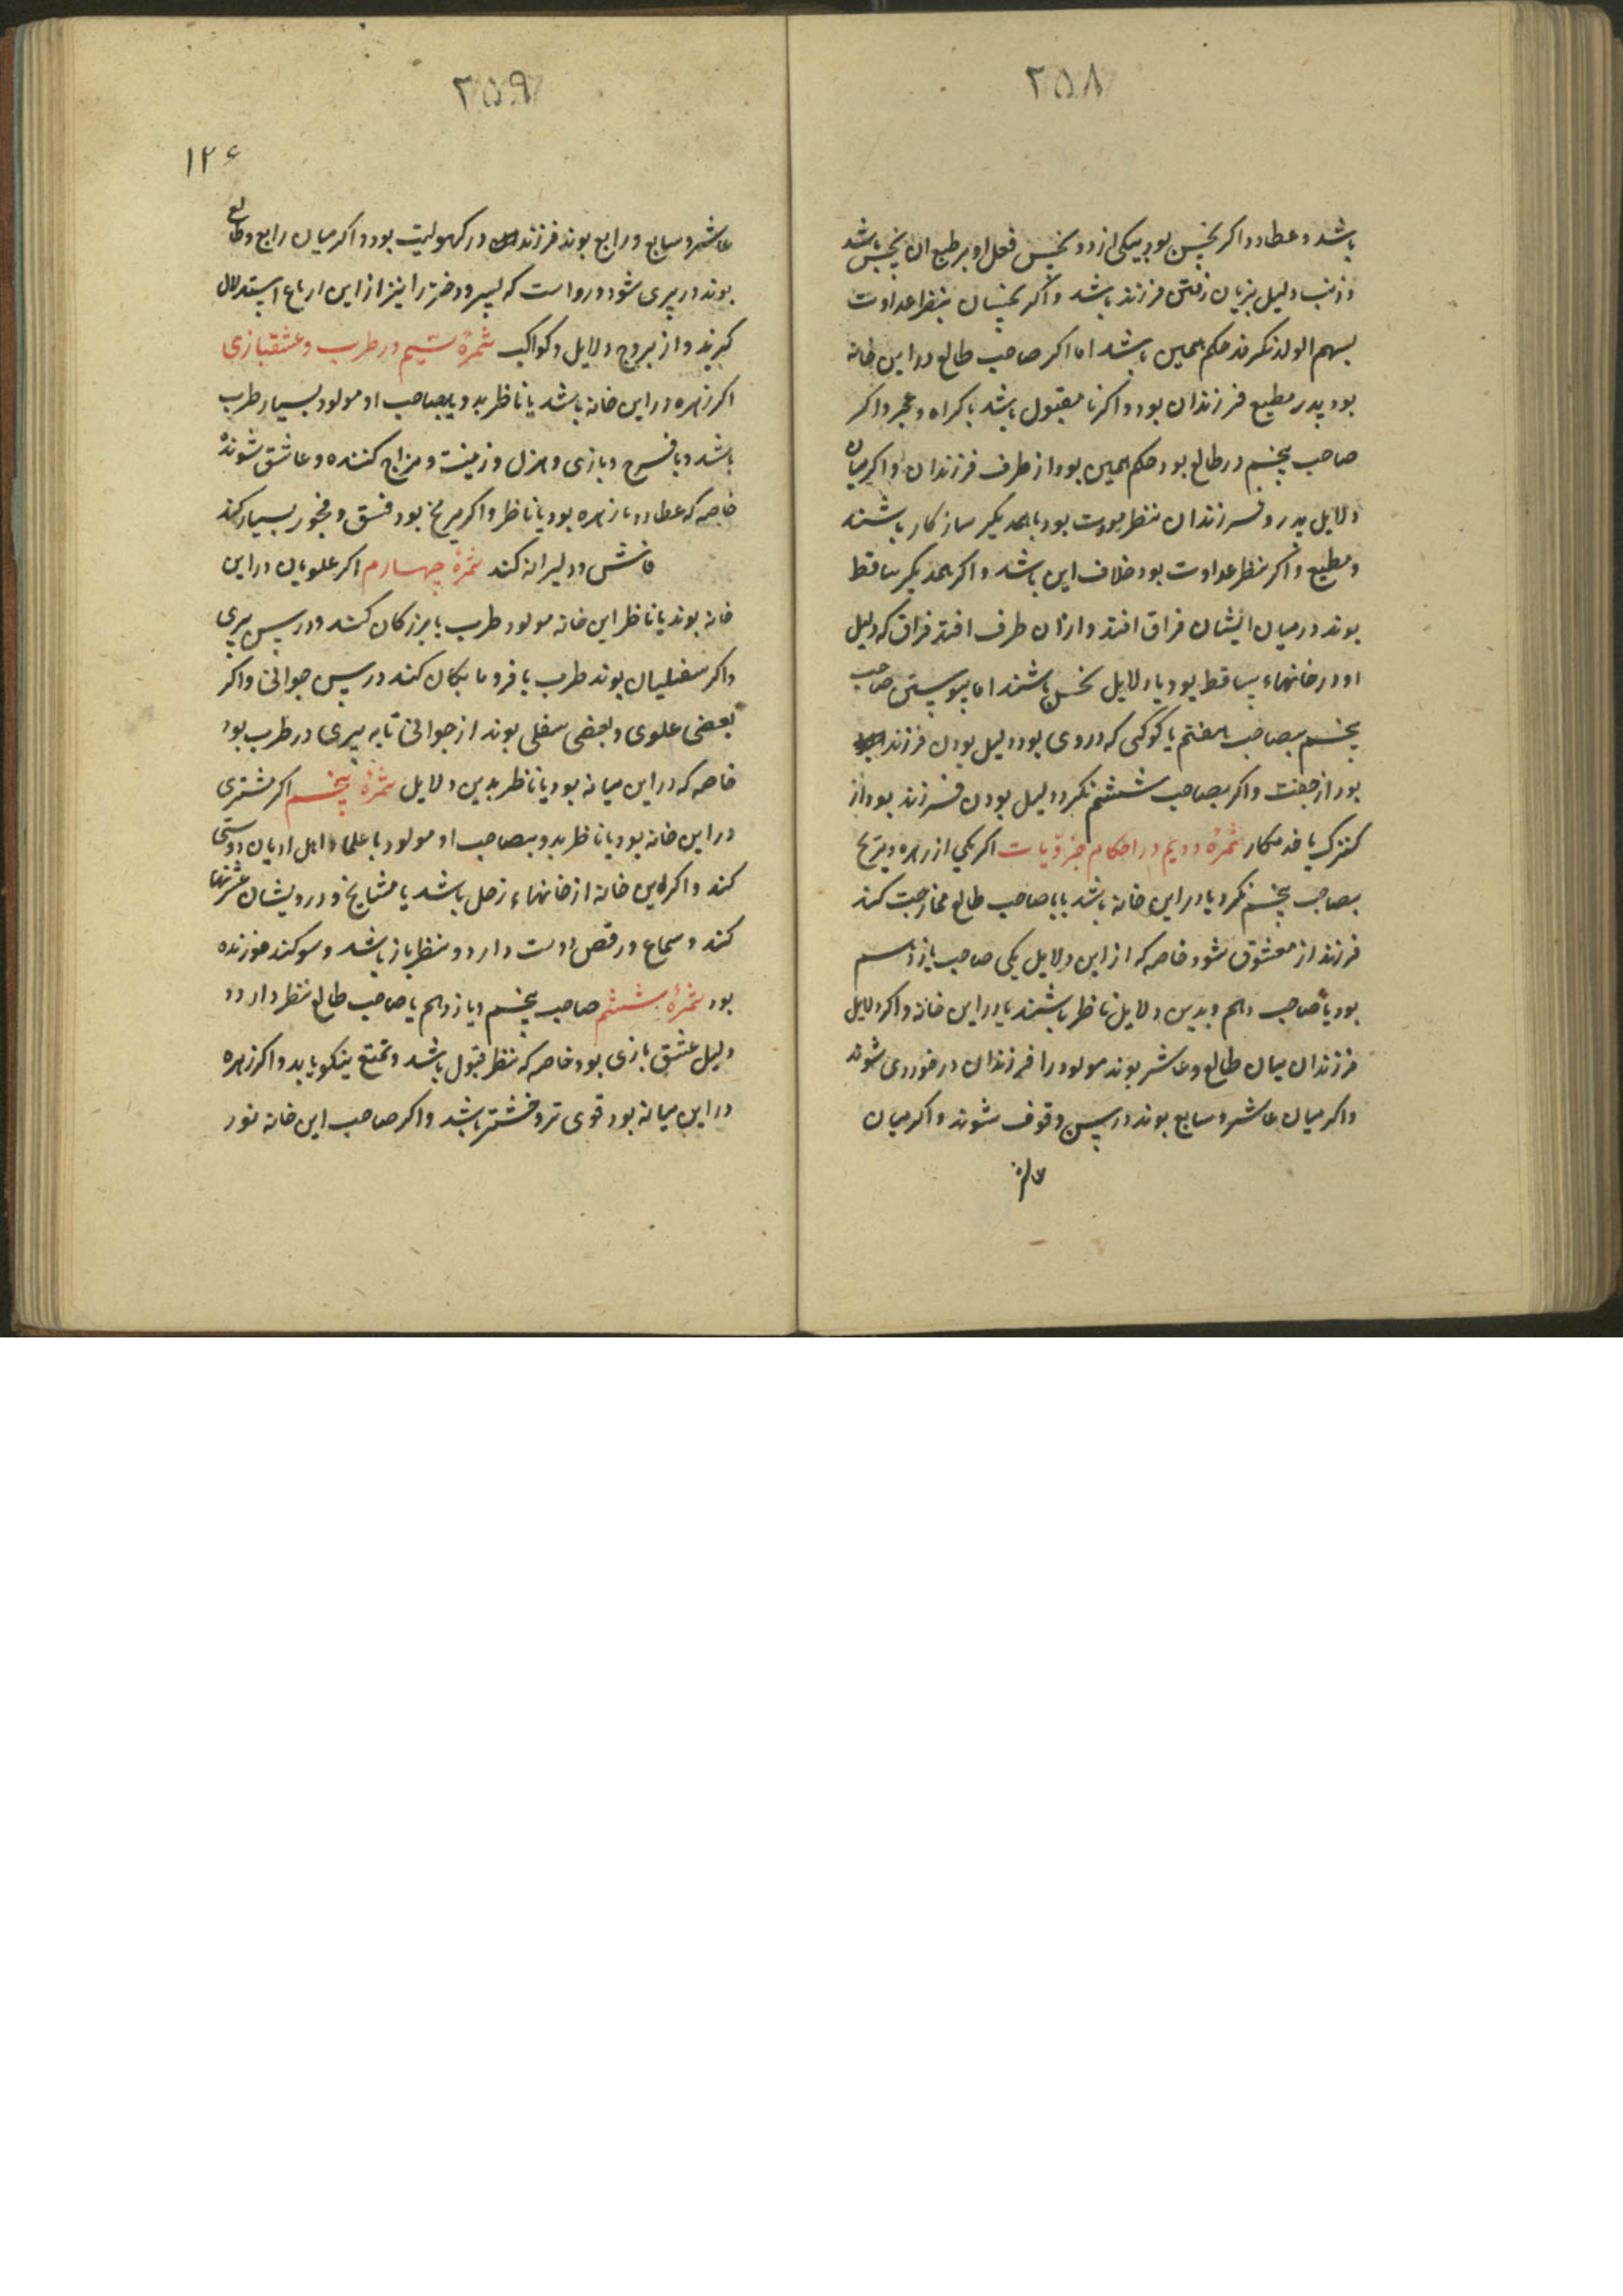 ۲۵۸
باشد و عطارد اگر بخس بود بیکی از دو نحس فعل او بر طبع ان نحس باشد
و ذنب دلیل بزیان رفتن فرزند باشد و اگر نحسان بنظر عداوت
بسهم الولد نکرند حکم همین باشد اما اکر صاحب طالع در این خانه
بود پدر مطیع فرزندان بود و اکر نا مقبول باشد باکراه و عجز و اکر
صاحب پنجم در طالع بود حکم همین بود از طرف فرزندان و اکر میان
دلایل پدر و فرزندان نظر مودت بود با همدیکر سازکار باشند
و مطیع و اکر نظر عداوت بود خلاف این باشد و اکر همدیکر ساقط
بوند در میان ایشان فراق افتد و ازان طرف افتد فراق که دلیل
او در خانهاء ساقط بود یا دلایل نحس باشند اما پیوستن صاحب
پنجم بصاحب هفتم یا کوکبی که در وی بود دلیل بودن فرزند
بود از جفت و اکر بصاحب ششم نکرد دلیل بودن فرزند بود از
کنیزک یا خدمتکار ثمرهٔ دویم در احکام جزویات اکر یکی از زهره و مریخ
بصاحب پنجم نکرد یا در این خانه باشد یا با صاحب طالع ممازجت کند
فرزند از معشوق شود خاصه که از این دلایل یکی صاحب یازدهم
بود یا صاحب دهم و بدین دلایل ناظر باشند یا در این خانه و اکر دلایل
فرزندان میان طالع و عاشر بوند مولود را فرزندان در خوردی شوند
و اکر میان عاشر و سابع بوند در سن وقوف شوند و اکر میان
عاشر
۲۵۹
۱۲۶
عاشر و سابع و رابع بوند فرزند در کهولیت بود و اکر میان رابع و طالع
بوند در پیری شود و رواست که پسر و دختر را نیز از این ارباع استدلال
کیرند و از بروج دلایل و کواکب ثمرهٔ سیم در طرب و عشقبازی
اکر زهره در این خانه باشد یا ناظر بدو یا بصاحب او مولود بسیار طرب
باشد و با فرح و بازی و هزل و زینت و مزاح کننده و عاشق شونده
خاصه که عطارد با زهره بود یا ناظر و اکر مریخ بود فسق و فجور بسیار کند
فاش و دلیرانه کند ثمرهٔ چهارم اکر علویان در این
خانه بوند یا ناظر این خانه مولود طرب با بزرکان کند و در سن پیری
و اکر سفلیان بوند طرب با فرومایکان کند در سن جوانی و اکر
بعضی علوی و بعضی سفلی بوند از جوانی تا به پیری در طرب بود
خاصه که در این میانه بود یا ناظر بدین دلایل ثمرهٔ پنجم اکر مشتری
در این خانه بود یا ناظر بدو بصاحب او مولود با علما و اهل ادیان دوستی
کند و اکر این خانه از خانهاء زحل باشد با مشایخ و درویشان عشرتها
کند و سماع و رقص دوست دارد و نظر باز باشد و سوکند خورنده
بود ثمرهٔ ششم صاحب پنجم و یازدهم یا صاحب طالع نظر دارد و
دلیل عشق بازی بود خاصه که نظر قبول باشد و تمتع نیکو یابد و اکر زهره
در این میانه بود قوی تر و خوشتر باشد و اکر صاحب این خانه نور